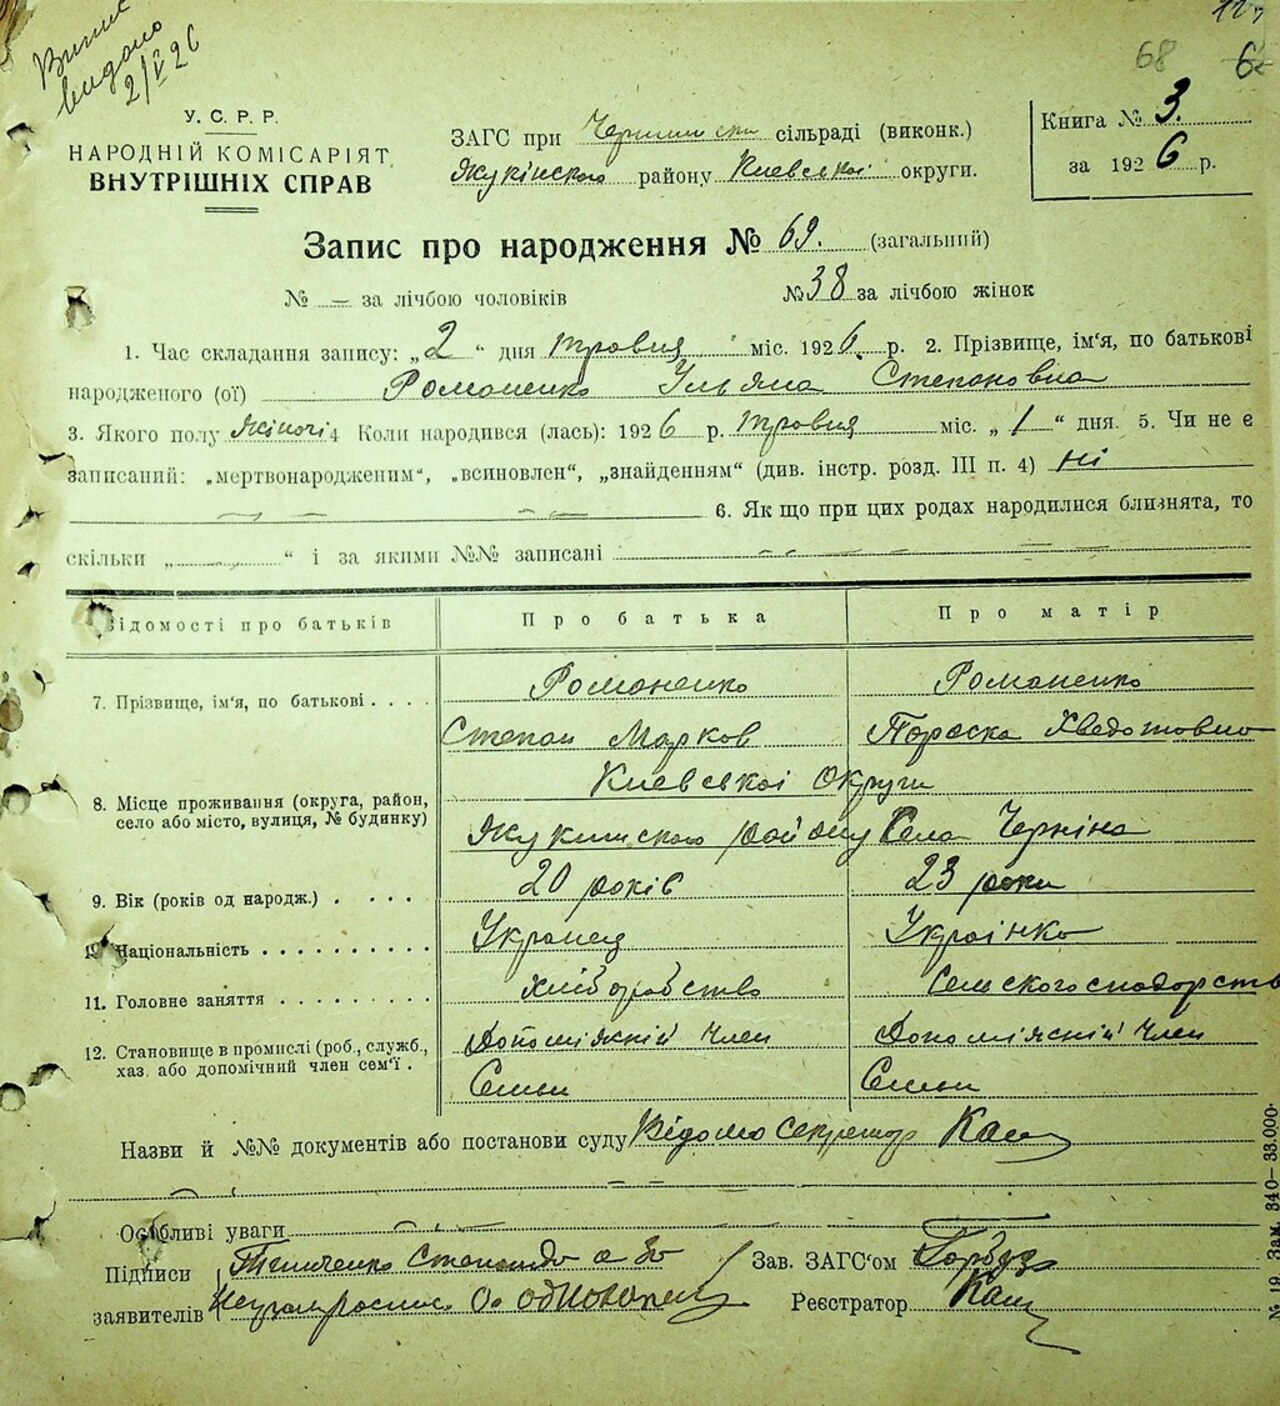 видано
2/V 26
68 6
У. С. Р. Р.
НАРОДНІЙ КОМІСАРІЯТ
ВНУТРІШНІХ СПРАВ
ЗАГС при сільраді (виконк.)
району Киевської округи.
Книга № 3.
за 1926 р.
Запис про народження № 69. (загальний)
№ — за лічбою чоловіків № 38 за лічбою жінок
1. Час складання запису: „2“ дня травня міс. 1926. р. 2. Прізвище, ім'я, по батькові
народженого (ої) Романенко Ульяна Степановна
3. Якого полу жіночі 4 Коли народився (лась): 1926 р. травня міс. „1“ дня. 5. Чи не є
записаний: „мертвонародженим“, „всиновлен“, „знайденням“ (див. інстр. розд. III п. 4) ні
6. Як що при цих родах народилися близнята, то
скільки „ “ і за якими №№ записані
Відомості про батьків Про батька Про матір
7. Прізвище, ім'я, по батькові . . . . Романенко Романенко
Степан Марков Параска Хведотовна
8. Місце проживання (округа, район,
село або місто, вулиця, № будинку)
Киевської Округи
району Села Черніна
9. Вік (років од народж.) . . . . 20 років 23 роки
10. Національність . . . . . . . . . . Украпец Украінка
11. Головне заняття . . . . . . . . . хліборобство
12. Становище в промислі (роб., служб.,
хаз. або допомічний член сем'ї .
член член
Семьи Семьи
Назви й №№ документів або постанови суду Відомо Секретар
Особливі уваги
Підписи
заявителів
Зав. ЗАГС'ом Гарбуз
Реєстратор
№ 19. Зам. 340—33.000.